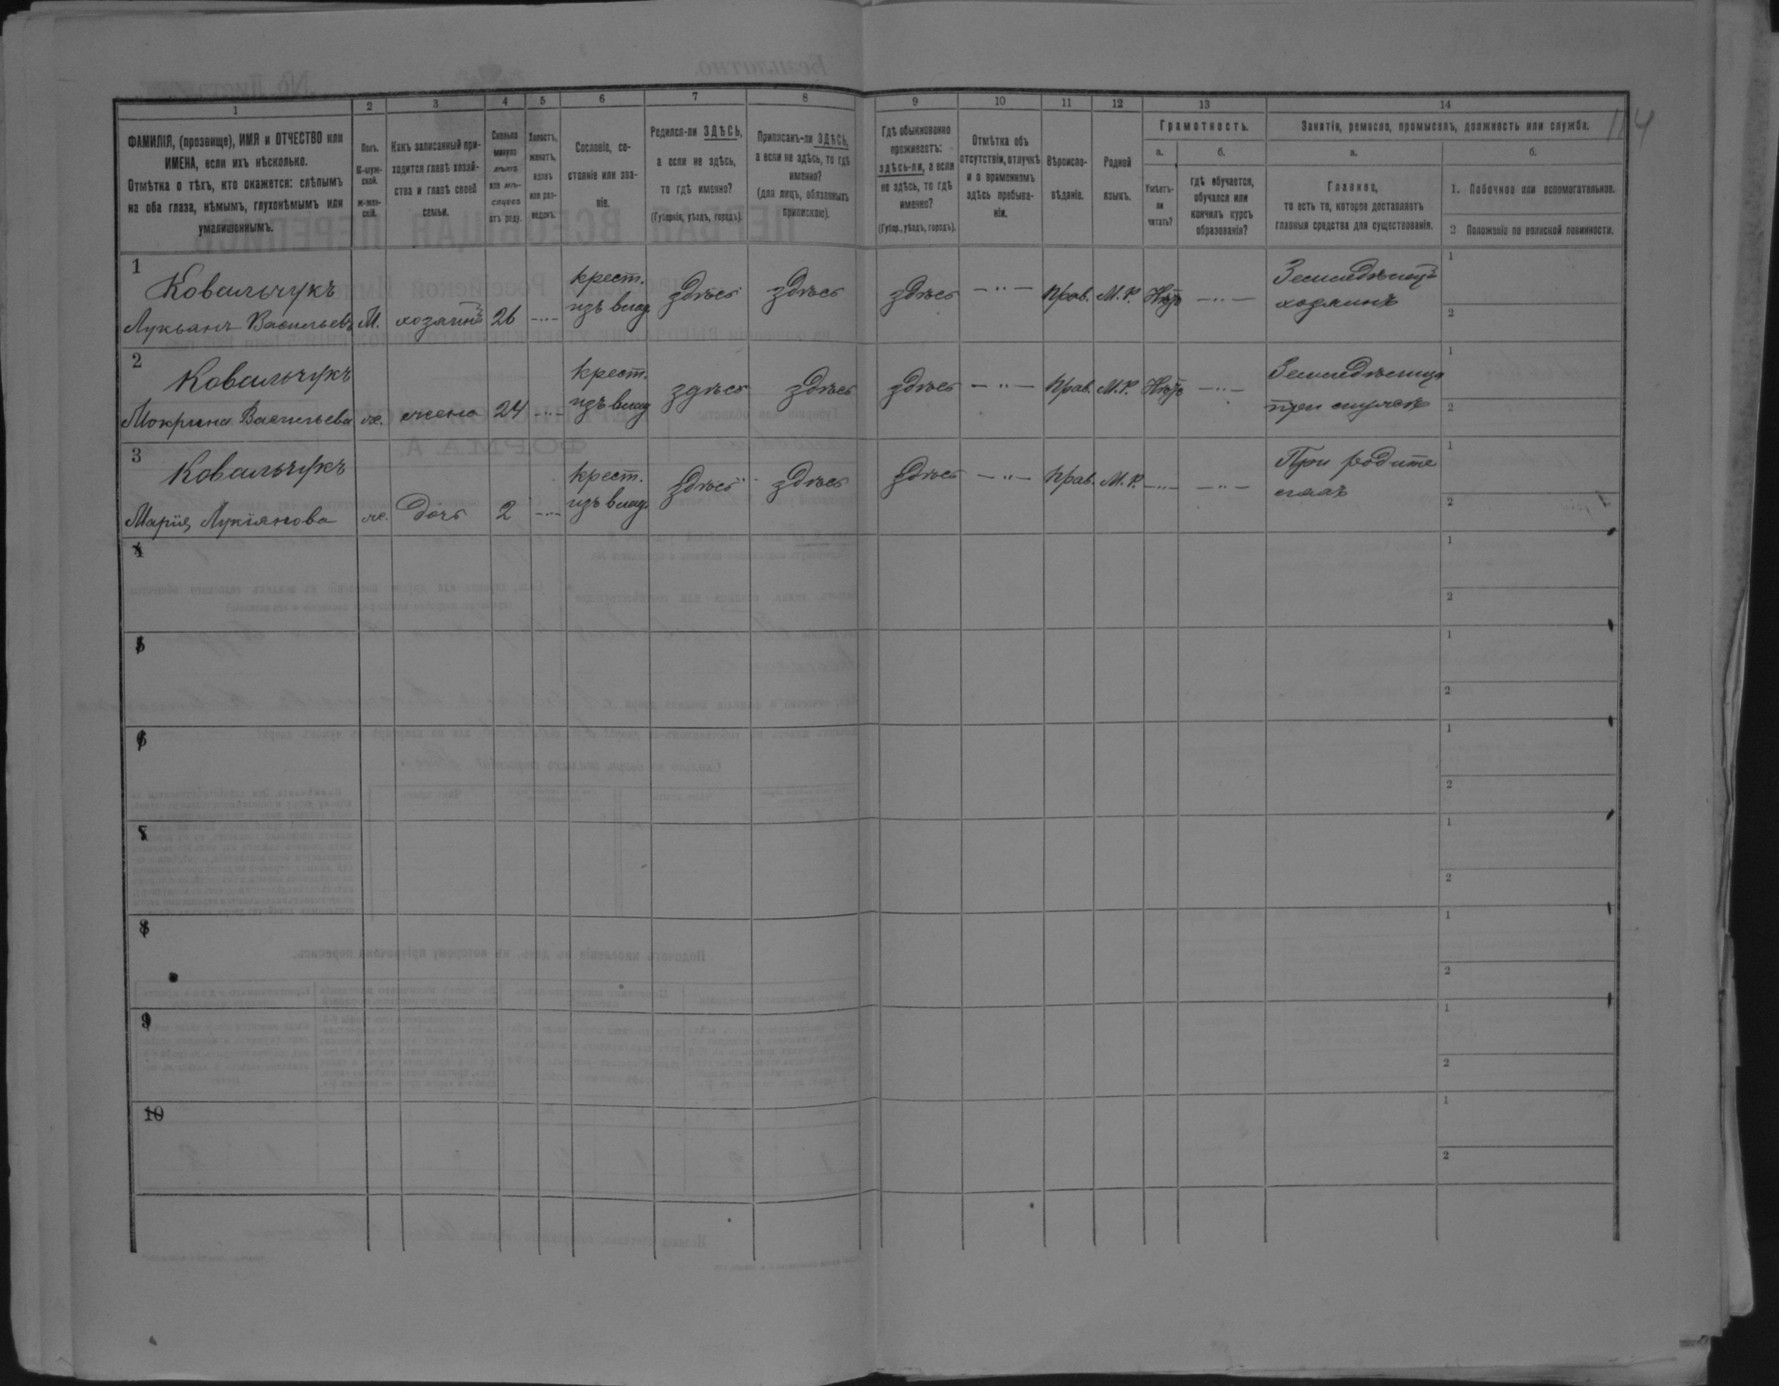 114
1 2 3 4 5 6 7 8 9 10 11 12 13 14
ФАМИЛІЯ, (прозвище), ИМЯ и ОТЧЕСТВО или
ИМЕНА, если ихъ нѣсколько.
Отмѣтка о тѣхъ, кто окажется: слѣпымъ
на оба глаза, нѣмымъ, глухонѣмымъ или
умалишеннымъ.
Полъ.
М-муж-
ской.
ж-жен-
скій.
Какъ записанный при-
ходится главѣ хозяй-
ства и главѣ своей
семьи.
Сколько
минуло
лѣтъ
или мѣ-
сяцевъ
отъ роду.
Холостъ,
женатъ,
вдовъ
или раз-
веденъ.
Сословіе, со-
стояніе или зва-
ніе.
Родился-ли ЗДѢСЬ,
а если не здѣсь,
то гдѣ именно?
(Губернія, уѣздъ, городъ).
Приписанъ-ли ЗДѢСЬ,
а если не здѣсь, то гдѣ
именно?
(для лицъ, обязанныхъ
припискою).
Гдѣ обыкновенно
проживаетъ:
здѣсь-ли, а если
не здѣсь, то гдѣ
именно?
(Губер., уѣздъ, городъ).
Отмѣтка объ
отсутствіи, отлучкѣ
и о временномъ
здѣсь пребыва-
ніи.
Вѣроиспо-
вѣданіе.
Родной
языкъ.
Грамотность.
а.
Умѣетъ-
ли
читать?
б.
гдѣ обучается,
обучался или
кончилъ курсъ
образованія?
Занятіе, ремесло, промыселъ, должность или служба.
а.
Главное,
то есть то, которое доставляетъ
главныя средства для существованія.
б.
1. Побочное или вспомогательное.
2 Положеніе по воинской повинности.
1
Ковальчукъ
Лукьянъ Васильевъ М. хозяинъ 26 крест. изъ влад. здѣсь здѣсь здѣсь — " — Прав. М. Р. Нѣтъ — " — Земледѣлецъ хозяинъ
1
2
2
Ковальчукъ
Мокрина Васильева ж. жена 24 крест. изъ влад. здѣсь здѣсь здѣсь — " — Прав. М. Р. Нѣтъ — " —
1
2
3
Ковальчукъ
Марія Лукіянова ж. дочь 2 крест. изъ влад. здѣсь здѣсь здѣсь — " — Прав. М. Р. — " — — " — При родителяхъ
1
2
4
1
2
5
1
2
6
1
2
7
1
2
8
1
2
9
1
2
10
1
2